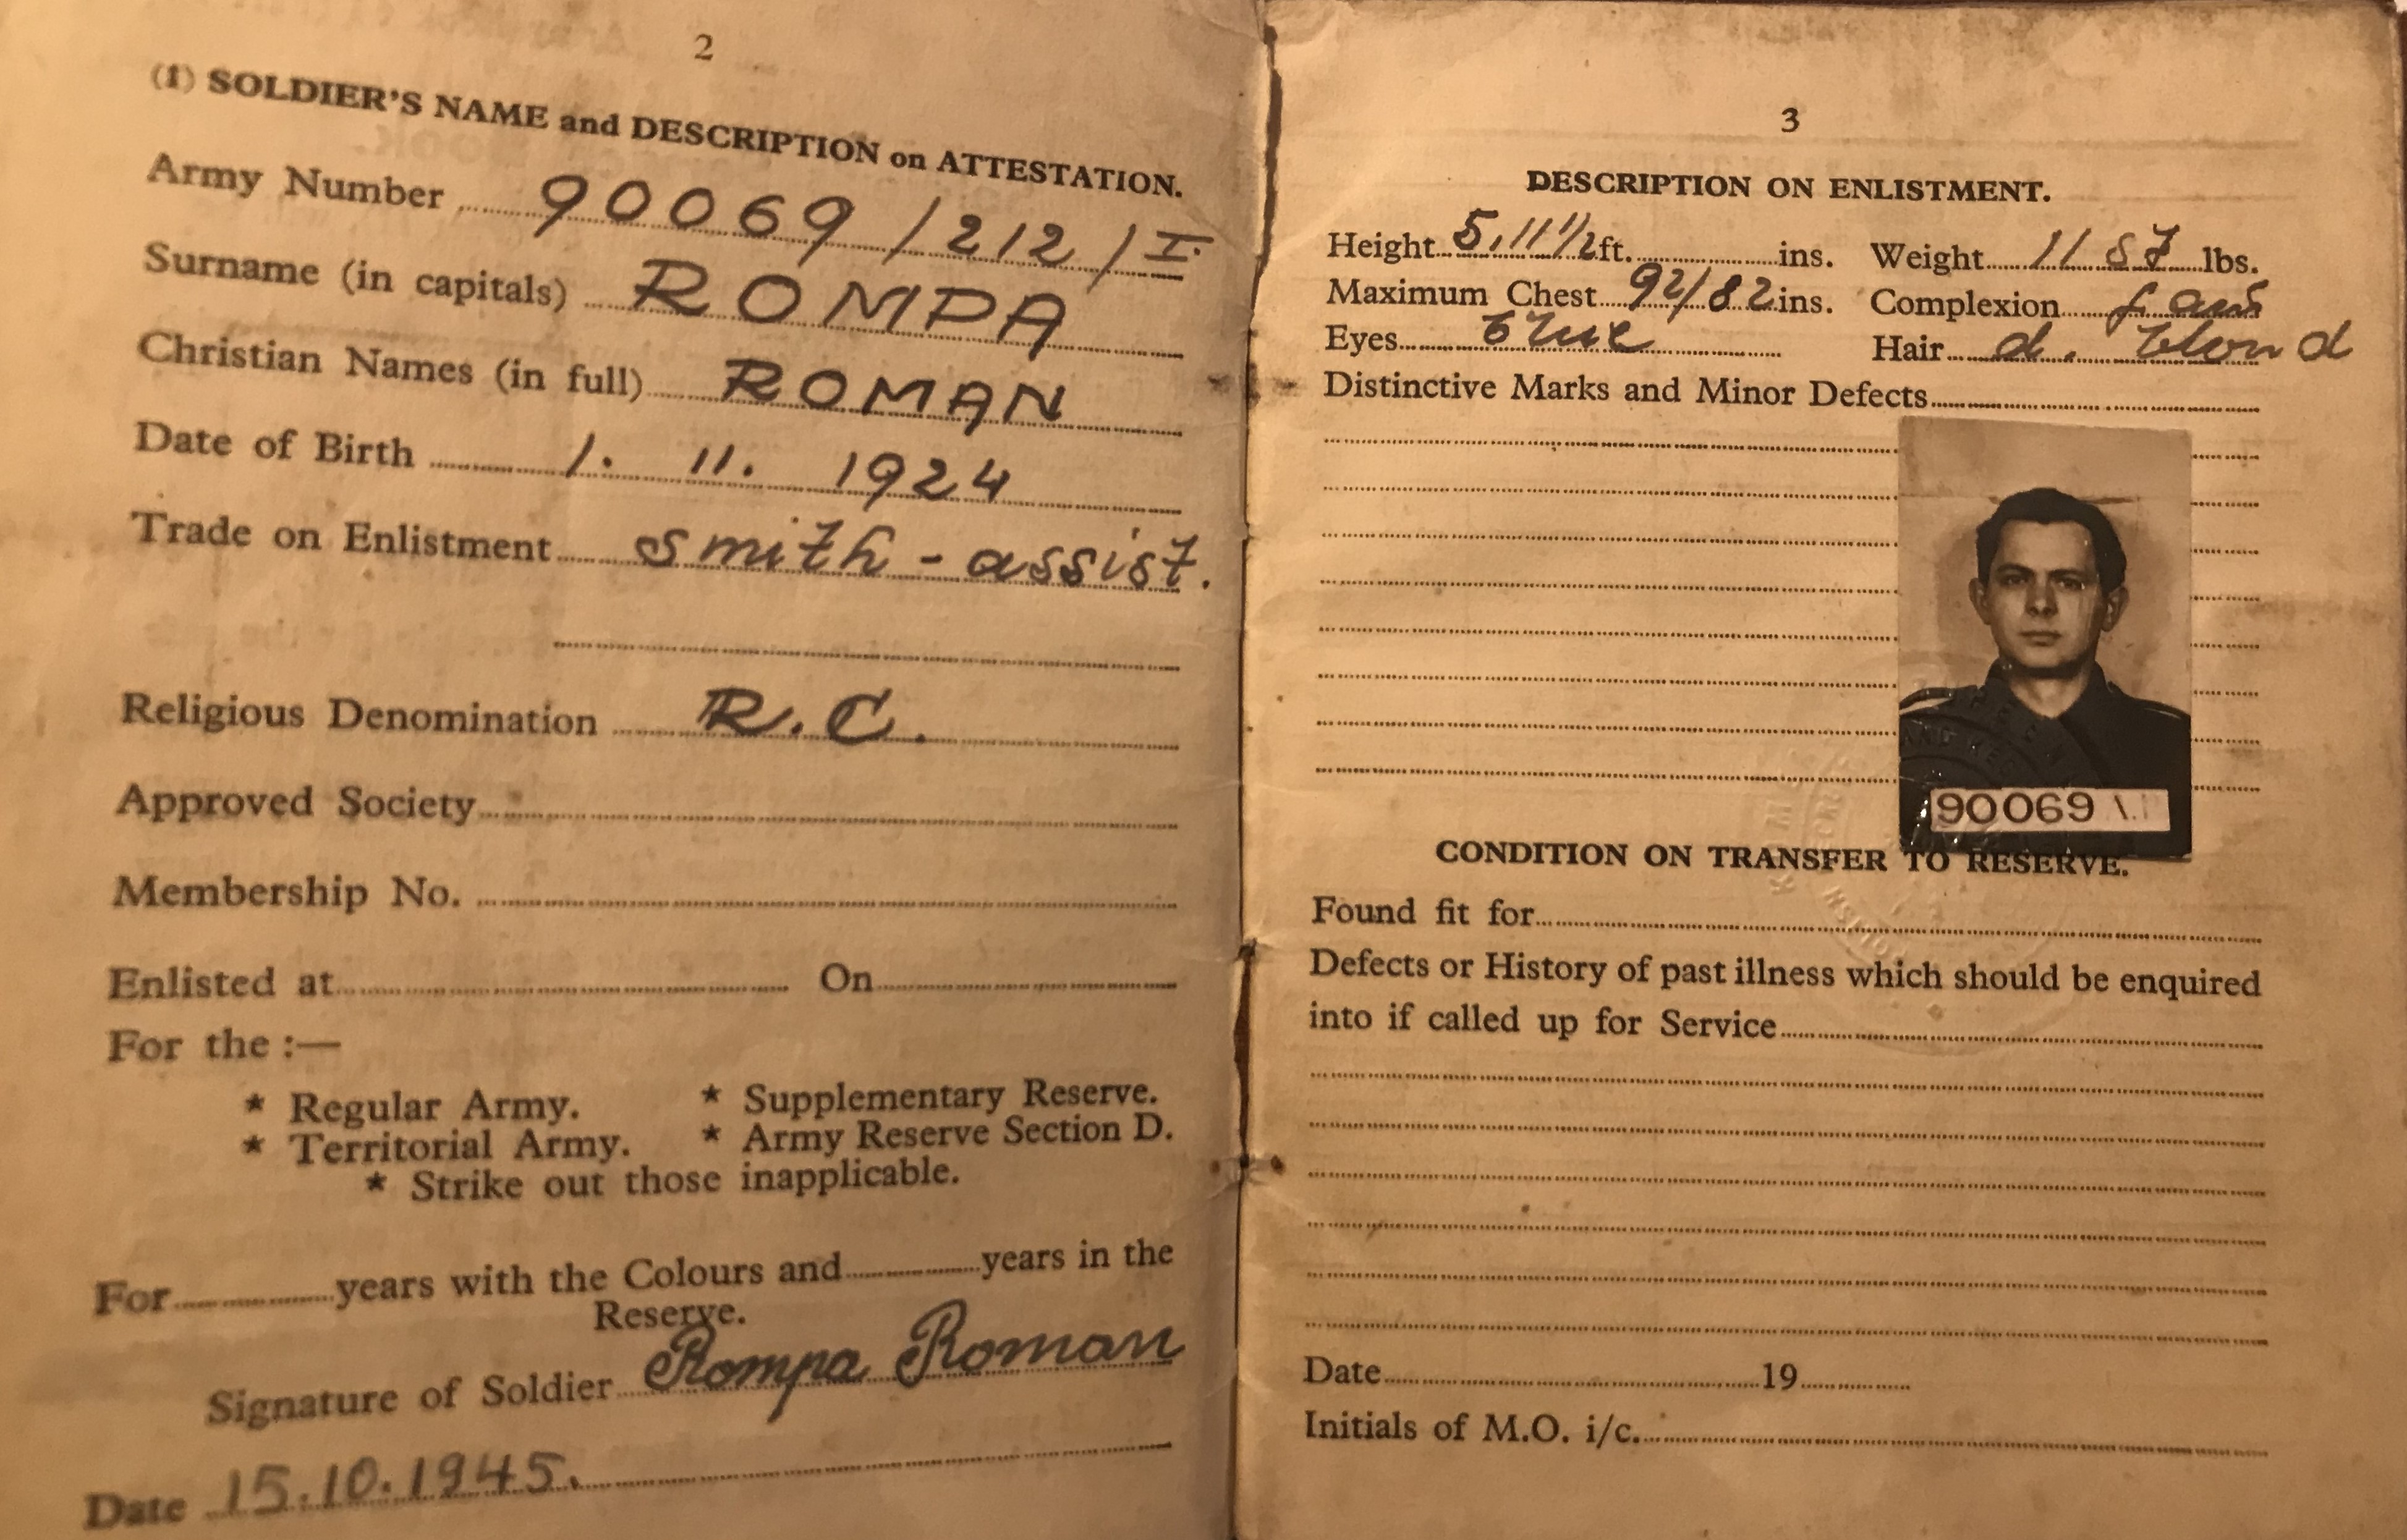 2
(1) SOLDIER'S NAME and DESCRIPTION on ATTESTATION.
Army Number 90069/212/I.
Surname (in capitals) ROMPA
Christian Names (in full) ROMAN
Date of Birth 1. 11. 1924
Trade on Enlistment smith - assist.
Religious Denomination R.C.
Approved Society
Membership No.
Enlisted at On
For the :—
* Regular Army. * Supplementary Reserve.
* Territorial Army. * Army Reserve Section D.
* Strike out those inapplicable.
For years with the Colours and years in the
Reserve.
Signature of Soldier Rompa Roman
Date 15.10.1945.
3
DESCRIPTION ON ENLISTMENT.
Height 5,11 1/2 ft. ins. Weight 11 s 7 lbs.
Maximum Chest 92/82 ins. Complexion
Eyes blue Hair d. blond
Distinctive Marks and Minor Defects
90069
CONDITION ON TRANSFER TO RESERVE.
Found fit for
Defects or History of past illness which should be enquired
into if called up for Service
Date 19
Initials of M.O. i/c.